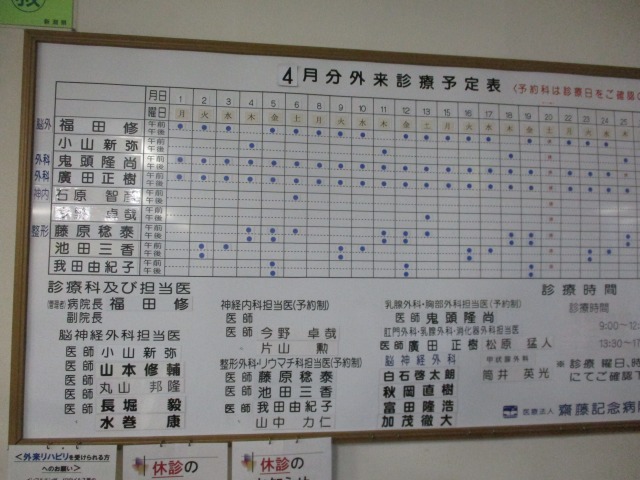 4月分外来診療予定表 (予約科は診療日をご確認
月日 1 2 3 4 5 6 7 8 9 10 11 12 13 14 15 16 17 18 19 20 21 22 23 24 25
曜日 月 火 水 木 金 土 月 火 水 木 金 土
脳外 福田 修 午前 午後
小山新弥 午前 午後
外科 鬼頭隆尚 午前 午後
外科 廣田正樹 午前 午後
神内 石原 智彦 午前 午後
卓哉 午前 午後
整形 藤原稔泰 午前 午後
池田三香 午前 午後
我田由紀子 午前 午後
診療科及び担当医
(管理者)病院長 福田 修
副院長
脳神経外科担当医
医師 小山新弥
医師 山本修輔
医師 丸山 邦隆
医師 長堀 毅
医師 水巻 康
神経内科担当医(予約制)
医師
医師 今野 卓哉
片山 勲
整形外科・リウマチ科担当医(予約制)
医師 藤原稔泰
医師 池田三香
医師 我田由紀子
山中 力仁
乳腺外科・胸部外科担当医(予約制)
医師 鬼頭隆尚
肛門外科・乳腺外科・消化器外科担当医
医師 廣田 正樹 松原 猛人
脳神経外科 甲状腺外科
白石啓太朗 筒井 英光
秋岡直樹
富田隆浩
加茂徹大
診療時間
診療時間
9:00~12:
13:30~17:
※診療曜日、時
にてご確認下
医療法人 齋藤記念病
<外来リハビリを受けられる方
へのお願い>
休診の
休診の
お知らせ